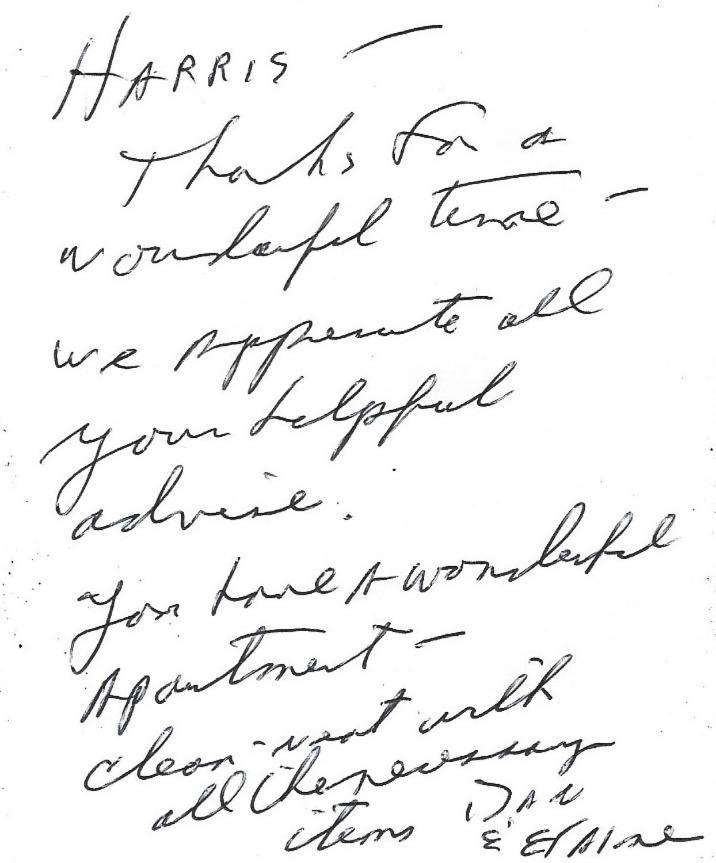 HARRIS —
Thanks for a
wonderful time —
we Appreciate all
your helpful
advise.
You have A wonderful
Apartment —
clean - neat with
all the necessary
items DAN
& ELAINE